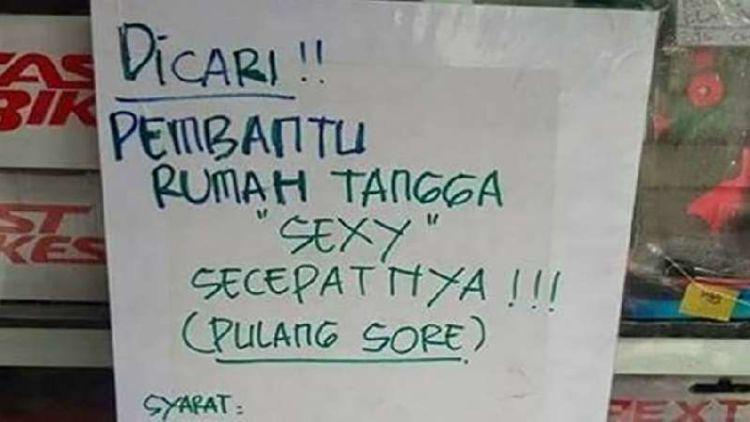 DICARI !!
PEMBANTU
RUMAH TANGGA
"SEXY"
SECEPATNYA !!!
(PULANG SORE)
SYARAT:
BIK
ST
KES
PEXT